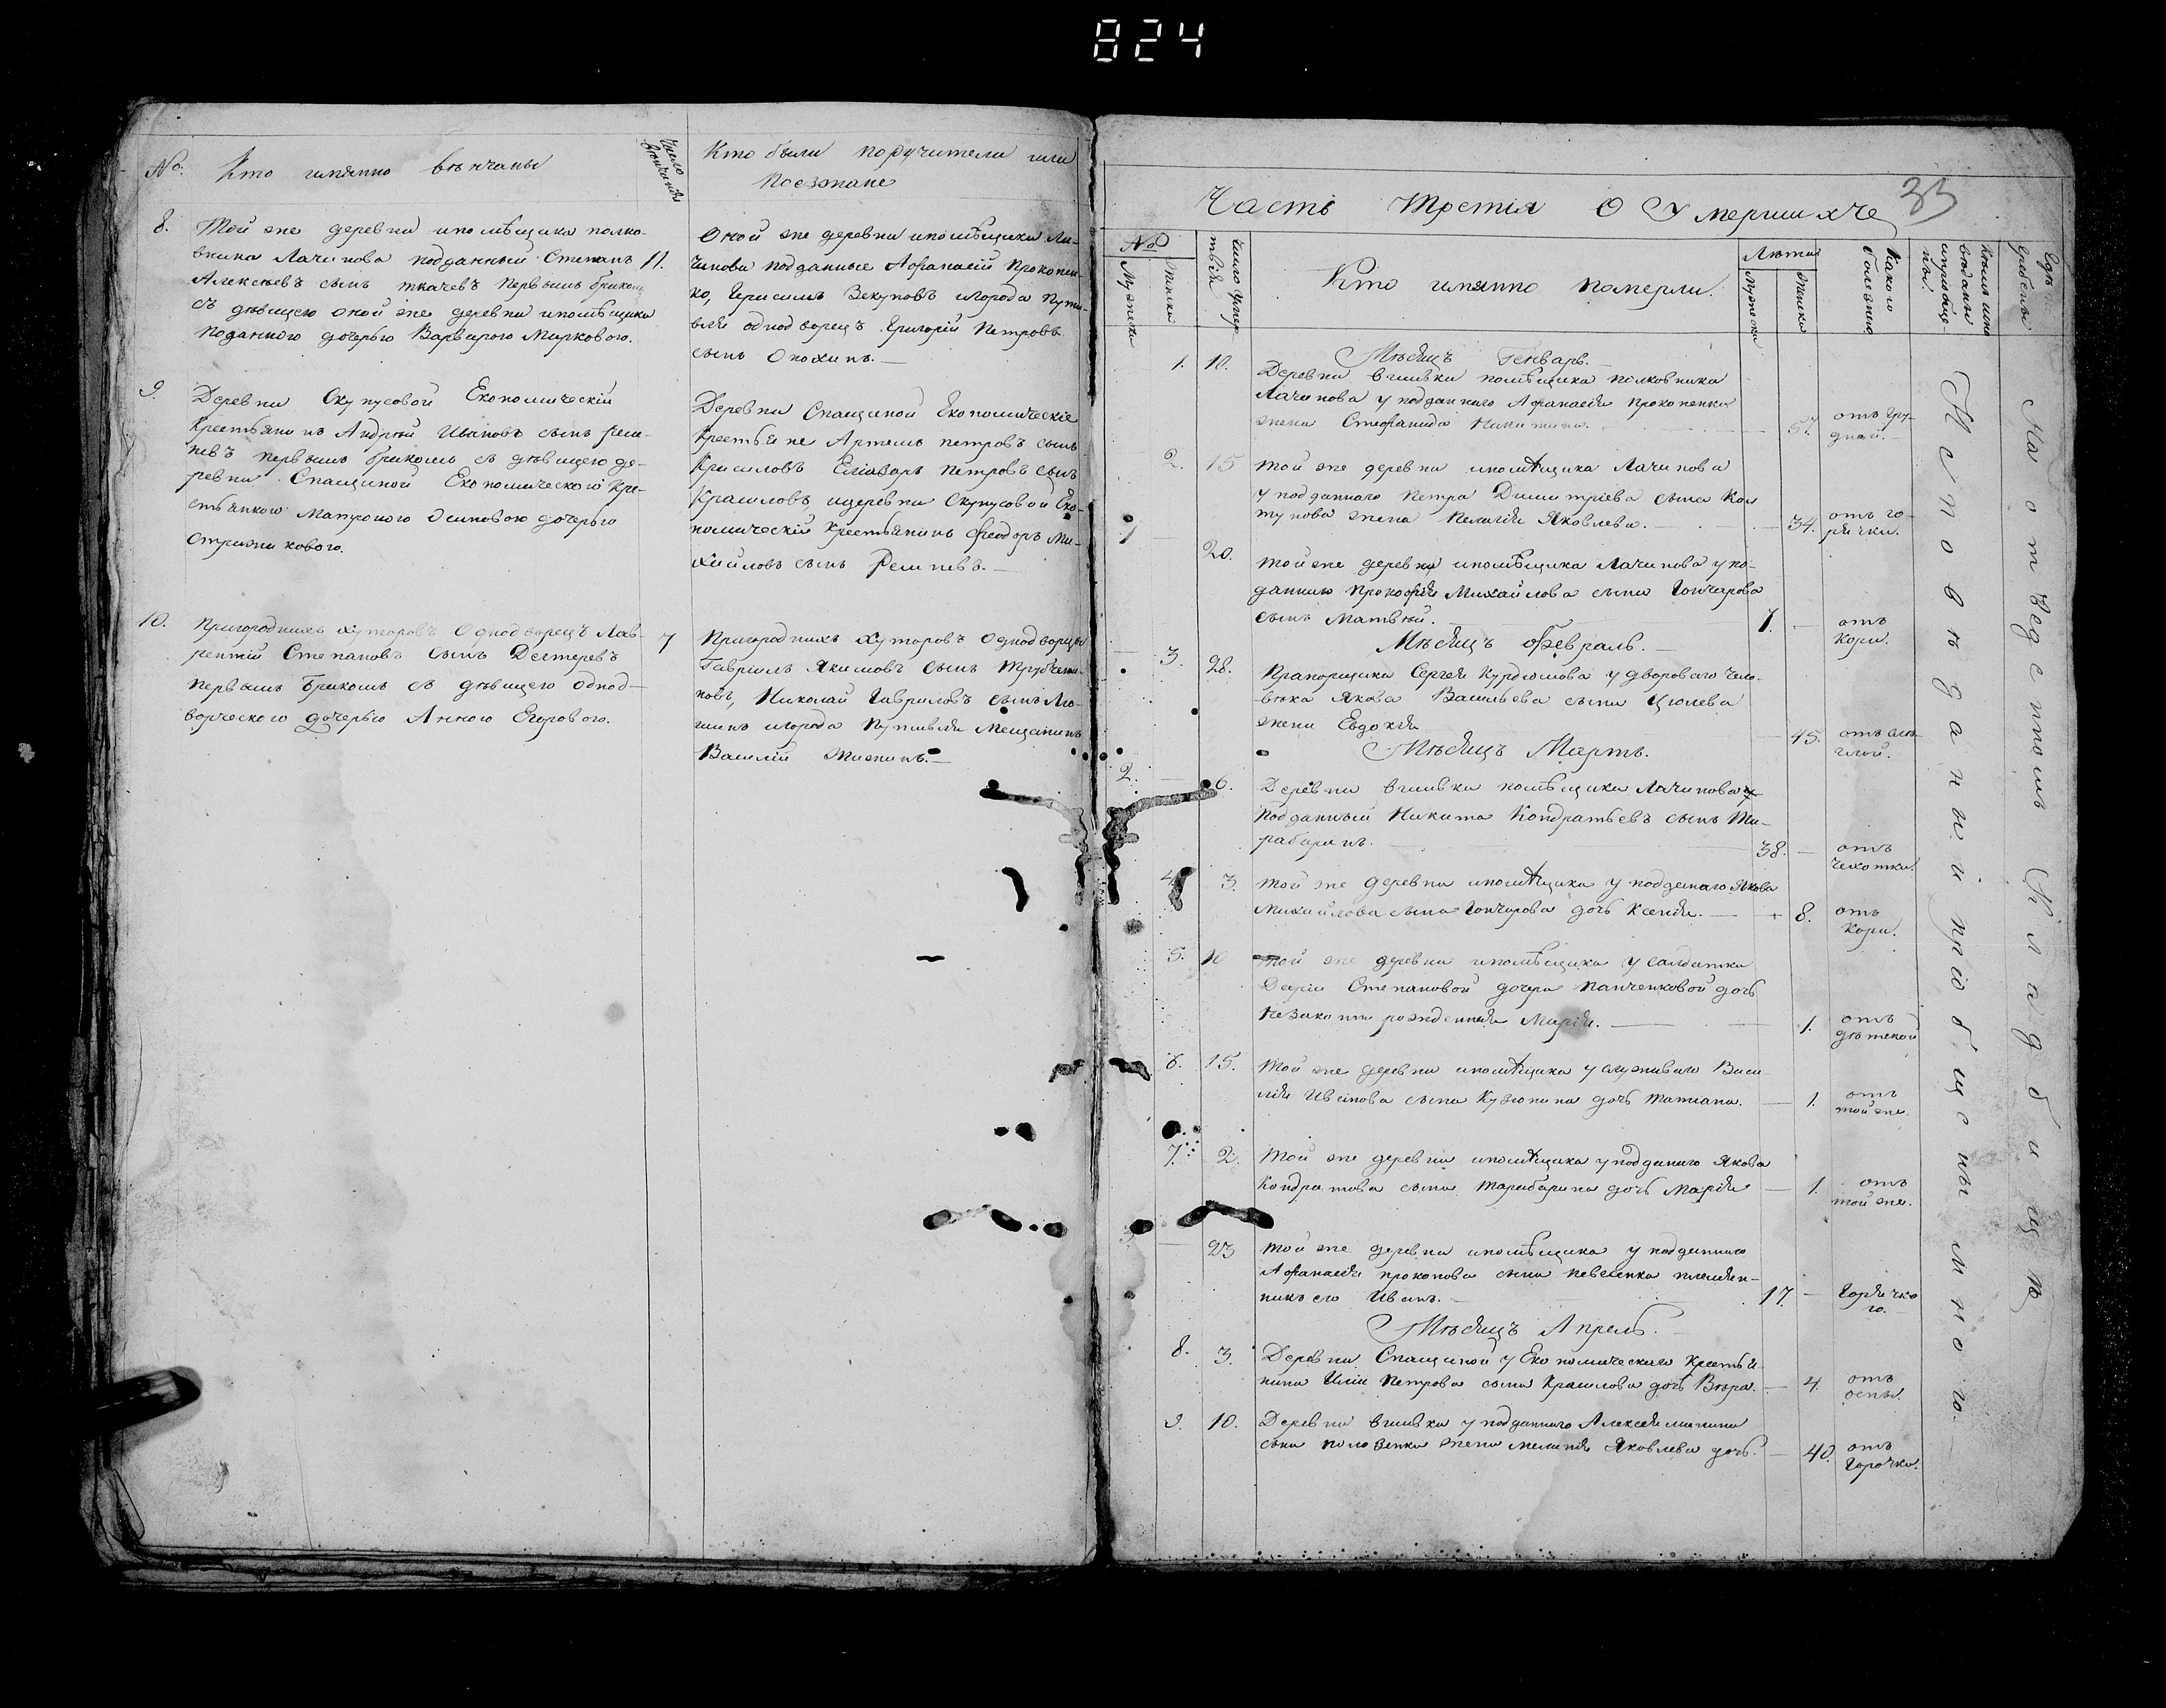 824
№
Кто имянно вѣнчаны
Число вѣнчанія
Кто были поручители или
Поезжане
8.
Той же деревни и помѣщика полко-
вника Лачинова подданный Степанъ
11.
Алексѣевъ сынъ Ткачевъ первымъ бракомъ
съ дѣвицею оной же деревни и помѣщика
поданного дочерью Варварою Марковою.
Оной же деревни и помѣщика Ла-
чинова подданные Афанасій Прокопен-
ко, Герасимъ Зекуновъ и города Пути-
вля однодворецъ Григорій Петровъ
сынъ Анохинъ.
9.
Деревни Скупусовой Економическій
Крестьянинъ Андрей Ивановъ сынъ
первымъ бракомъ съ дѣвицею де-
ревни Спащиной Економического Кре-
Матроною Осиповою дочерью
Стрижаковою.
Деревни Спащиной Економическіе
Крестьяне Артемъ Петровъ сынъ
Крамсловъ Елiазаръ Петровъ сынъ
и деревни Скупусовой Еко-
номическій Крестьянинъ Феодоръ Ми-
хайловъ сынъ
10.
Пригородныхъ хуторовъ Однодворецъ Лав-
рентій Степановъ сынъ Дехтеревъ
7
первымъ бракомъ съ дѣвицею однод-
ворческого дочерью Анною Егоровою.
Пригородныхъ хуторовъ однодворцы
Гавріилъ Якимовъ сынъ
Николай Гавриловъ сынъ
и города Путивля Мещанинъ
Василій
33
Часть Третія О Умершихъ
№
Мужеска
Женска
Число умер-
твія
Кто имянно померли.
Лѣта
Мужеска
Женска
Какою
болезнію
Кѣмъ испо-
вѣданы
и пріобще-
ны.
Гдѣ
погребены
Мѣсяцъ Генварь.
1. 10.
Деревни Вшивки помѣщика полковника
Лачинова у подданного Афанасія Прокопенка
жена Стефанида Никитина.
57
отъ гру-
дной.
2. 15
Той же деревни и помѣщика Лачинова
у подданного Петра Димитріева сына Кол
тунова жена Пелагія Яковлева.
34.
отъ го-
рячки.
1
20.
Той же деревни и помѣщика Лачинова у по-
данного Прокофія Михайлова сына Гончарова
сынъ Матвѣй.
1.
отъ
кори.
Мѣсяцъ Февраль.
3. 28.
Прапорщика Сергея Курдюмова у дворового чело-
вѣка Якова Васильева сына Цюлева
жена Евдокія
45.
Мѣсяцъ Мартъ.
2. 6.
Деревни Вшивки помѣщика Лачинова
подданный Никита Кондратьевъ сынъ Та-
рабаринъ.
38.
отъ
чехотки.
4. 3.
Той же деревни и помѣщика у подданого Якова
Михайлова сына Гончарова дочь Ксенія.
8.
отъ
кори.
5. 10
Той же деревни и помѣщика у салдатки
Дарiи Степановой дочери Панченковой дочь
незаконно рожденная Марія.
1.
отъ
дѣтской
6. 15.
Той же деревни и помѣщика у служиваго Васи
лія Иванова сына Кузюнина дочь Татіана.
1.
отъ
той же.
7. 2.
Той же деревни и помѣщика у подданого Якова
Кондратова сына Тарабарина дочь Марія
1.
отъ
той же.
3. 23
Той же деревни и помѣщика у подданного
Афанасія Прокопова сына племян-
никъ его Иванъ.
17.
горячко
ю.
Мѣсяцъ Апрель.
8. 3.
Деревни Спащиной у Економического Крестья-
нина Иліи Петрова сына дочь Вѣра.
4.
отъ
оспы.
9. 10.
Деревни Вшивки у подданного Алексея
сына жена Меланія Яковлева дочь.
40.
отъ
горячки.
Исповѣданы и пріобщены мною.
На отведенномъ Кладбищѣ